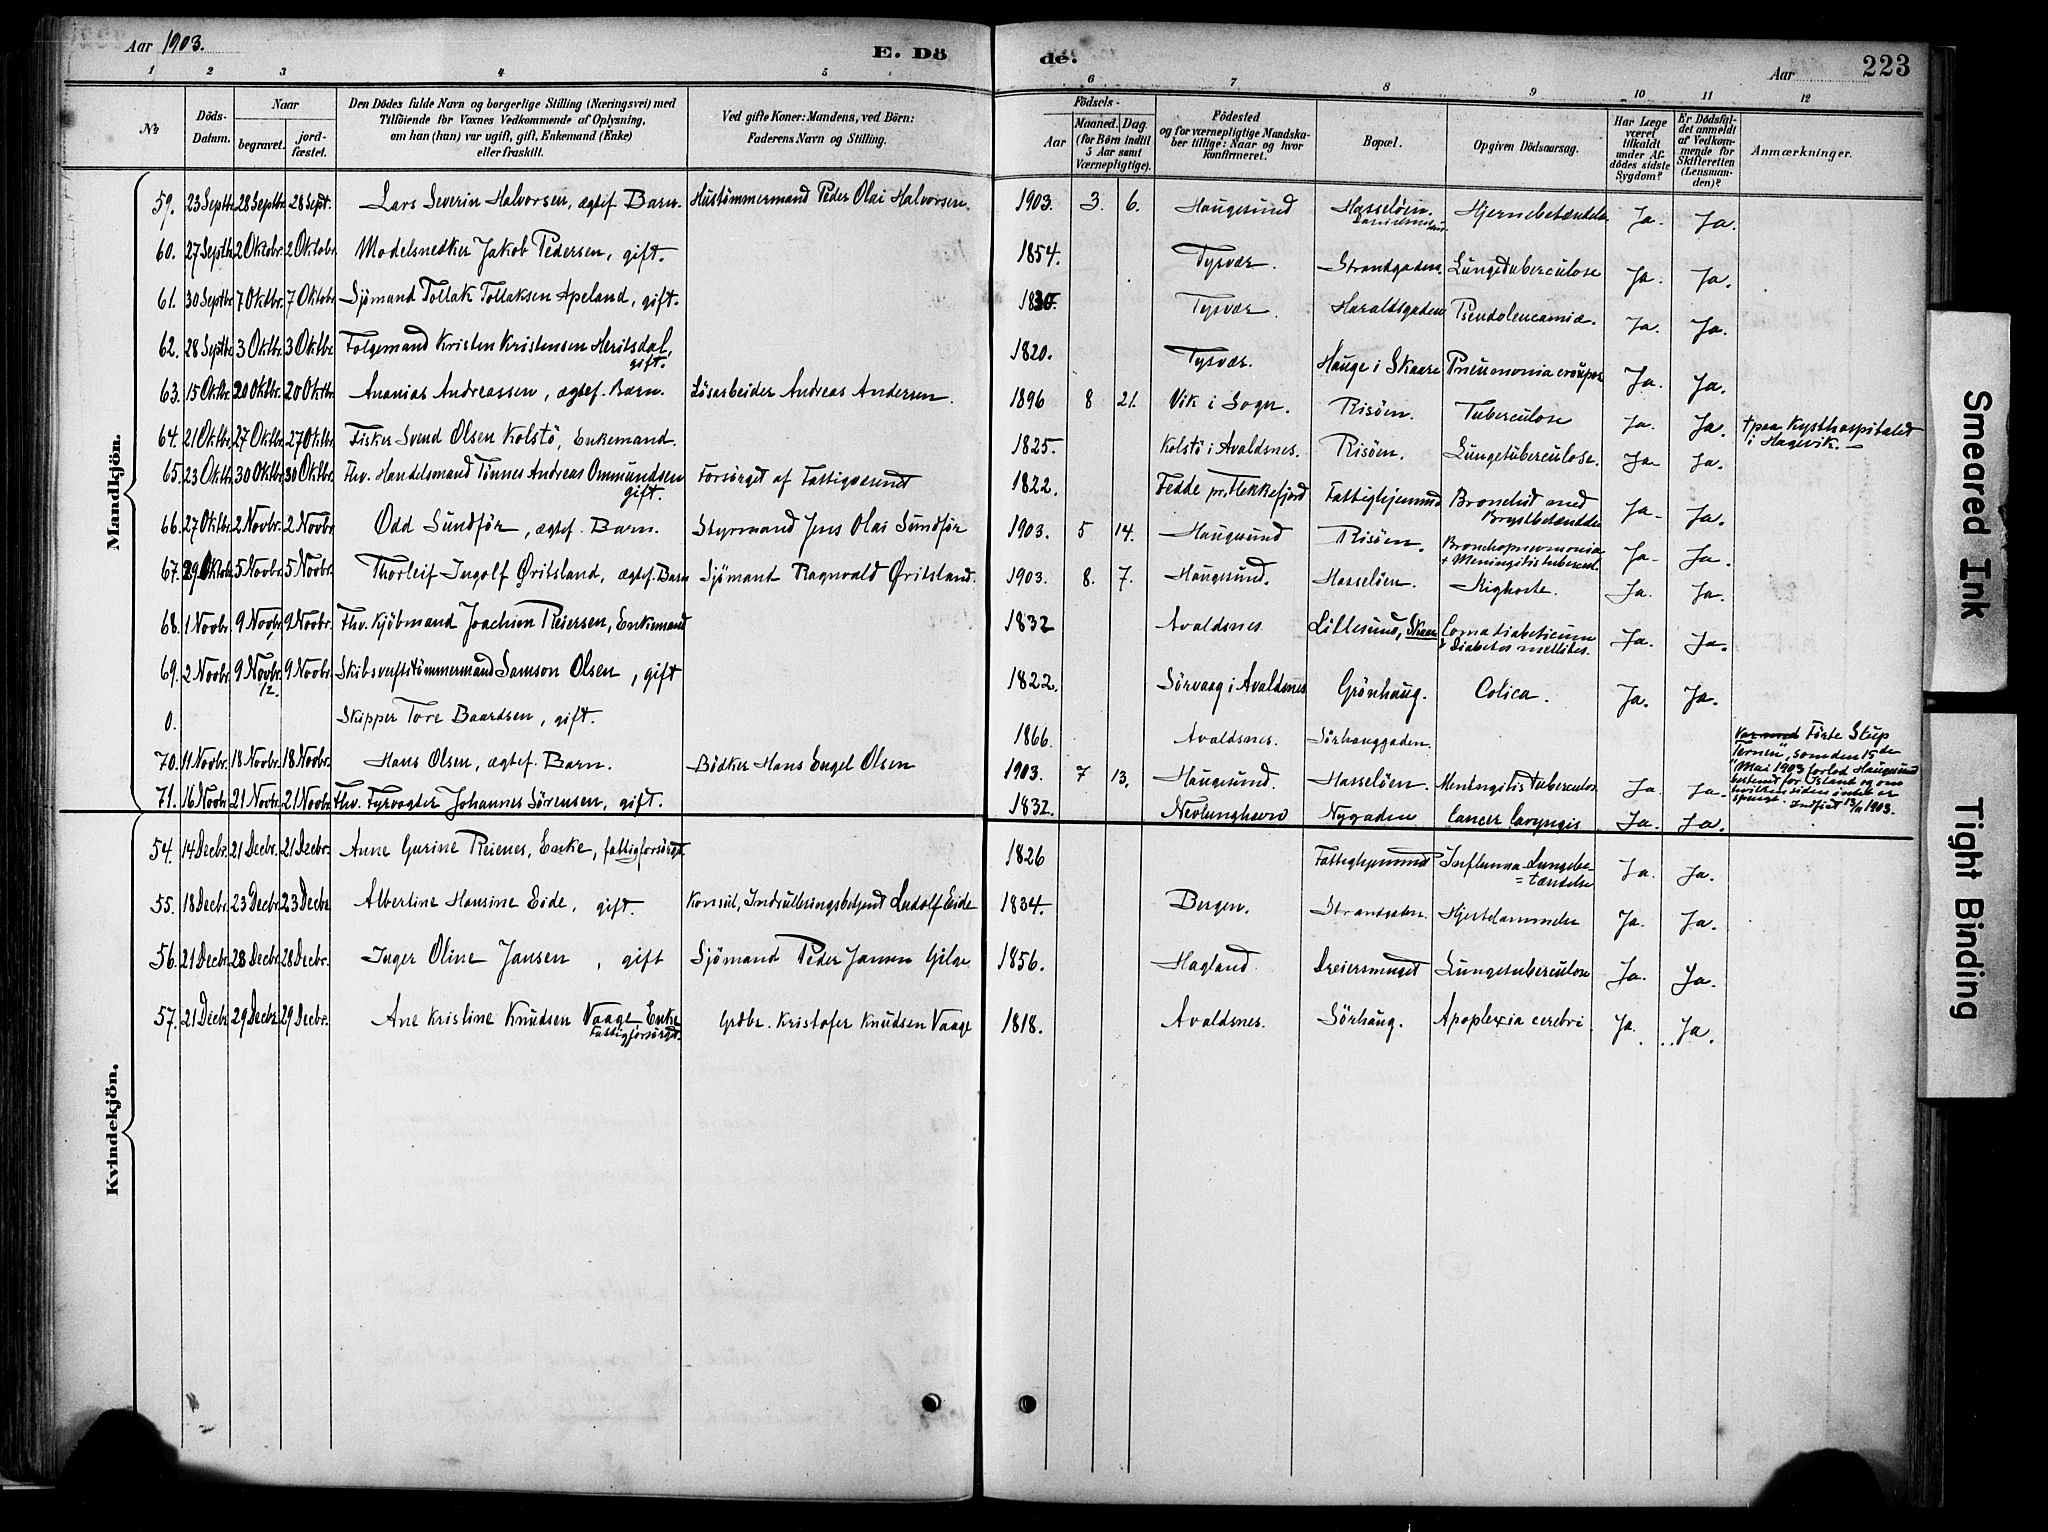 Aar 1903.
E. Döde.
Aar
223
1 2 3 4 5 6 7 8 9 10 11 12
No
Döds-Datum.
Naar
begravet.
jord-fæstet.
Den Dödes fulde Navn og borgerlige Stilling (Næringsvei) med
Tilföiende for Voxnes Vedkommende af Oplysning,
om han (hun) var ugift, gift, Enkemand (Enke)
eller fraskilt.
Ved gifte Koner: Mandens, ved Börn:
Faderens Navn og Stilling.
Födsels-
Aar
Maaned. Dag.
(for Börn indtil
5 Aar samt
Værnepligtige).
Födested
og for værnepligtige Mandska-
ber tillige: Naar og hvor
konfirmeret.
Bopæl.
Opgiven Dödsaarsag.
Har Læge
været
tilkaldt
under Af-
dödes sidste
Sygdom?
Er Dödsfal-
det anmeldt
af Vedkom-
mende for
Skifteretten
(Lensman-
den)?
Anmærkninger.
Mandkjön.
59. 23 Septbr. 28 Septbr. 28 Sept. Lars Severin Halvorsen, ægtef. Barn. Hustömmermand Peder Olai Halvorsen. 1903. 3. 6. Haugesund Hasselöen. Hjernebetændelse Ja. Ja.
60. 27 Septbr. 2 Oktobr. 2 Oktobr. Modelsnedker Jakob Pedersen, gift. 1854. Tysvær. Strandgaden. Lungetuberculose Ja. Ja.
61. 30 Septbr. 7 Oktbr. 7 Oktobr. Sjömand Tollak Tollaksen Apeland, gift. Tysvær. Haraldsgaden Pseudoleucamiæ. Ja. Ja.
62. 28 Septbr. 3 Oktbr. 3 Oktbr. Folgemand Kristen Kristensen Heritsdal, gift. 1820. Tysvær. Hauge i Skaare Pneumonia croupos Ja. Ja.
63. 15 Oktbr. 20 Oktbr. 20 Oktbr. Ananias Andreassen, ægtef. Barn. Lösarbeider Andreas Andersen. 1896 8 21. Vik i Sogn. Risöen. Tuberculose Ja. Ja. † paa Kysthospitalet i Hagevik.
64. 21 Oktbr. 27 Oktbr. 27 Oktbr. Fisker Svend Olsen Kolstö, Enkemand. 1825. Kolstö i Avaldsnes. Risöen. Lungetuberculose. Ja Ja.
65. 23 Oktbr. 30 Oktbr. 30 Oktbr. Fhv. Handelsmand Tönnes Andreas Ommundsen gift. Forsörget af Fattigvæsenet 1822. Fedde pr. Flekkefjord Fattighjemmet Bronchit med Brystbetændelse Ja. Ja.
66. 27 Oktbr. 2 Novbr. 2 Novbr. Odd Sundför, ægtef. Barn. Styrmand Jens Olai Sundför 1903. 5 14. Haugesund Risöen. Bronchopneumonia + Meningitis tubercul. Ja. Ja.
67. 29 Oktobr. 5 Novbr. 5 Novbr. Thorleif Ingolf Øritsland, ægtef. Barn Sjömand Ragnvald Øritsland. 1903. 8. 7. Haugesund. Hasselöen. Kighoste. Ja. Ja.
68. 1 Novbr. 9 Novbr. 9 Novbr. Fhv. Kjöbmand Joachim Reiersen, Enkemand 1832 Avaldsnes Lillesund, Skaare Coma diabeticum & Diabetes mellites. Ja. Ja.
69. 2 Novbr. 9 Novbr. 9 Novbr. Skibsverftstömmermand Samson Olsen, gift 1822. Sörvaag i Avaldsnes Grönhaug. Colica. Ja. Ja.
0. Skipper Tore Baardsen, gift. 1866. Avaldsnes. Sörhauggaden. Var med Förte Skip
"Ternen", som den 15de
Mai 1903 forlod Haugesund
bestemt for Island og om
hvilken siden intet er
spurgt. Indfört 13/11 1903.
70. 11 Novbr. 18 Novbr. 18 Novbr. Hans Olsen, ægtef. Barn. Bödker Hans Engel Olsen 1903. 7 13. Haugesund. Hasselöen. Meningitis tuberculos Ja. Ja.
71. 16 Novbr. 21 Novbr. 21 Novbr. Fhv. Fyrvogter Johannes Sörensen, gift. 1832. Nevlunghavn Nygaden Cancer laryngis Ja. Ja.
Kvindekjön.
54. 14 Decbr. 21 Decbr. 21 Decbr. Anne Gurine Reienes, Enke, fattigforsörget. 1826 Fattighjemmet Influenza-Lungebe-
=tændelse Ja. Ja.
55. 18 Decbr. 23 Decbr. 23 Decbr. Albertine Hansine Eide, gift. Konsul, Indrulleringsbetjent Ludolf Eide 1834. Bergen. Strandgaden. Hjertelammelse Ja. Ja.
56. 21 Decbr. 28 Decbr. 28 Decbr. Inger Oline Jansen, gift Sjömand Peder Jansen Gilje 1856. Hagland. Dreiersmuget Lungetuberculose Ja. Ja.
57. 21 Decbr. 29 Decbr. 29 Decbr. Ane Kristine Knudsen Vaage Enke Fattigforsörget. Grdbr. Kristofer Knudsen Vaage 1818. Avaldsnes. Sörhaug. Apoplexia cerebri Ja. Ja.
Smeared Ink
Tight Binding